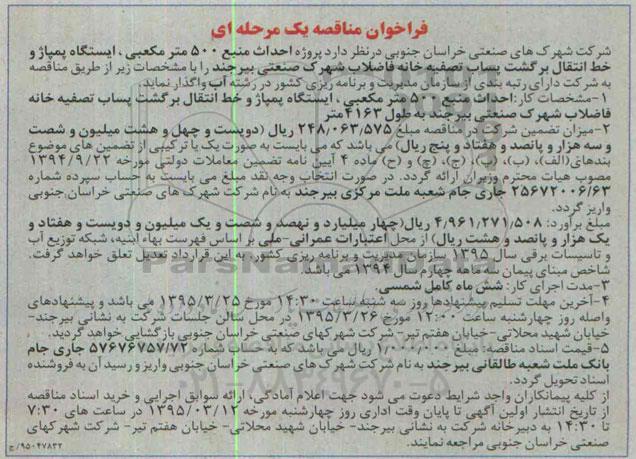 فراخوان مناقصه یک مرحله ای
شرکت شهرک های صنعتی خراسان جنوبی درنظر دارد پروژه احداث منبع ۵۰۰ متر مکعبی ، ایستگاه پمپاژ و
خط انتقال برگشت پساب تصفیه خانه فاضلاب شهرک صنعتی بیرجند را با مشخصات زیر از طریق مناقصه
به شرکت دارای رتبه بندی از سازمان مدیریت و برنامه ریزی کشور در رشته آب واگذار نماید.
۱-مشخصات کار: احداث منبع ۵۰۰ متر مکعبی ، ایستگاه پمپاژ و خط انتقال برگشت پساب تصفیه خانه
فاضلاب شهرک صنعتی بیرجند به طول ۴۱۶۳ متر
۲-میزان تضمین شرکت در مناقصه مبلغ ۲۴۸/۰۶۳/۵۷۵ ریال (دویست و چهل و هشت میلیون و شصت
و سه هزار و پانصد و هفتاد و پنج ریال) می باشد که می بایست به صورت یک یا ترکیبی از تضمین های موضوع
بندهای(الف)، (ب)، (پ)، (ج)، (چ) و (ح) ماده ۴ آیین نامه تضمین معاملات دولتی مورخه ۱۳۹۴/۹/۲۲
مصوب هیات محترم وزیران ارائه گردد. در صورت انتخاب وجه نقد مبلغ می بایست به حساب سپرده شماره
۲۵۶۷۲۰۰۶/۶۳ جاری جام شعبه ملت مرکزی بیرجند به نام شرکت شهرک های صنعتی خراسان جنوبی
واریز گردد.
مبلغ برآورد: ۴/۹۶۱/۲۷۱/۵۰۸ ریال(چهار میلیارد و نهصد و شصت و یک میلیون و دویست و هفتاد و
یک هزار و پانصد و هشت ریال) از محل اعتبارات عمرانی-ملی بر اساس فهرست بهاء ابنیه، شبکه توزیع آب
و تاسیسات برقی سال ۱۳۹۵ سازمان مدیریت و برنامه ریزی کشور، به این قرارداد تعدیل تعلق خواهد گرفت.
شاخص مبنای پیمان سه ماهه چهارم سال ۱۳۹۴ می باشد.
۳-مدت اجرای کار: شش ماه کامل شمسی.
۴-آخرین مهلت تسلیم پیشنهادها روز سه شنبه ساعت ۱۴:۳۰ مورخ ۱۳۹۵/۳/۲۵ می باشد و پیشنهادهای
واصله روز چهارشنبه ساعت ۱۲:۰۰ مورخ ۱۳۹۵/۳/۲۶ در محل سالن جلسات شرکت به نشانی بیرجند-
خیابان شهید محلاتی-خیابان هفتم تیر- شرکت شهرکهای صنعتی خراسان جنوبی بازگشایی خواهد گردید.
۵-قیمت اسناد مناقصه: مبلغ ۱/۰۰۰/۰۰۰ ریال می باشد که به حساب شماره ۵۷۶۷۶۷۵۷/۷۲ جاری جام
بانک ملت شعبه طالقانی بیرجند به نام شرکت شهرک های صنعتی خراسان جنوبی واریز و رسید آن به فروشنده
اسناد تحویل گردد.
از کلیه پیمانکاران واجد شرایط دعوت می شود جهت اعلام آمادگی، ارائه سوابق اجرایی و خرید اسناد مناقصه
از تاریخ انتشار اولین آگهی تا پایان وقت اداری روز چهارشنبه مورخه ۱۳۹۵/۰۳/۱۲ در ساعت های ۷:۳۰
تا ۱۴:۳۰ به دبیرخانه شرکت به نشانی بیرجند- خیابان شهید محلاتی- خیابان هفتم تیر- شرکت شهرکهای
صنعتی خراسان جنوبی مراجعه نمایند.
۹۵۰۴۷۸۳۲/ج
۰۲۱-۸۸۳۴۹۶۷۰-۵